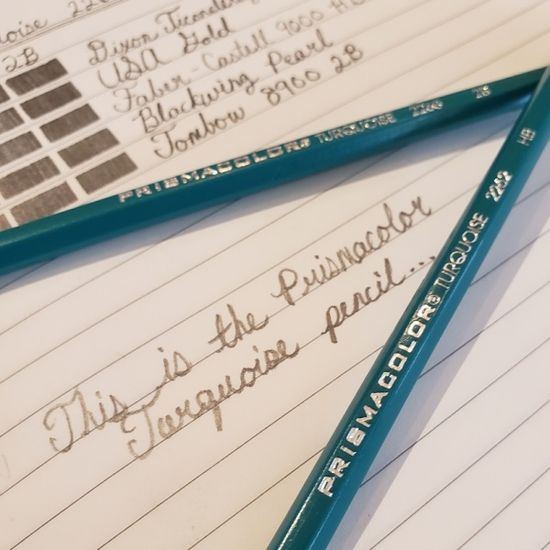 oise 22
2B
Dixon Ticonderog
USA Gold
Faber-Castell 9000 HB
Blackwing Pearl
Tombow 8900 2B
PRISMACOLOR® TURQUOISE 2266 2B
PRISMACOLOR® TURQUOISE 2262 HB
This is the Prismacolor
Turquoise pencil...